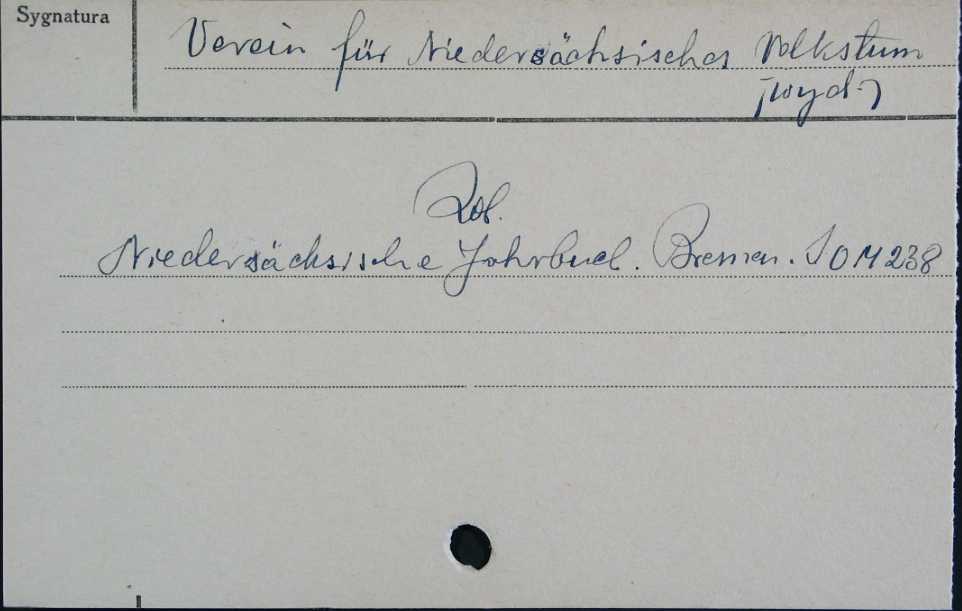 Sygnatura
Verein für Niedersächsisches Volkstum
[wyd.]
Zob.
Niedersächsische Jahrbuch. Bremen. SOM 238